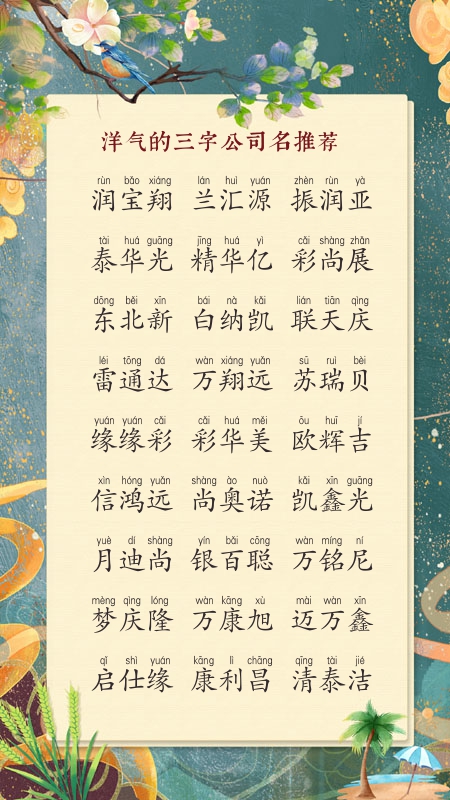 洋气的三字公司名推荐
rùn bǎo xiáng lán huì yuán zhèn rùn yà
润宝翔 兰汇源 振润亚
tài huá guāng jīng huá yì cǎi shàng zhǎn
泰华光 精华亿 彩尚展
dōng běi xīn bái nà kǎi lián tiān qìng
东北新 白纳凯 联天庆
léi tōng dá wàn xiáng yuǎn sū ruì bèi
雷通达 万翔远 苏瑞贝
yuán yuán cǎi cǎi huá měi ōu huī jí
缘缘彩 彩华美 欧辉吉
xìn hóng yuǎn shàng ào nuò kǎi xīn guāng
信鸿远 尚奥诺 凯鑫光
yuè dí shàng yín bǎi cōng wàn míng ní
月迪尚 银百聪 万铭尼
mèng qìng lóng wàn kāng xù mài wàn xīn
梦庆隆 万康旭 迈万鑫
qǐ shì yuán kāng lì chāng qīng tài jié
启仕缘 康利昌 清泰洁